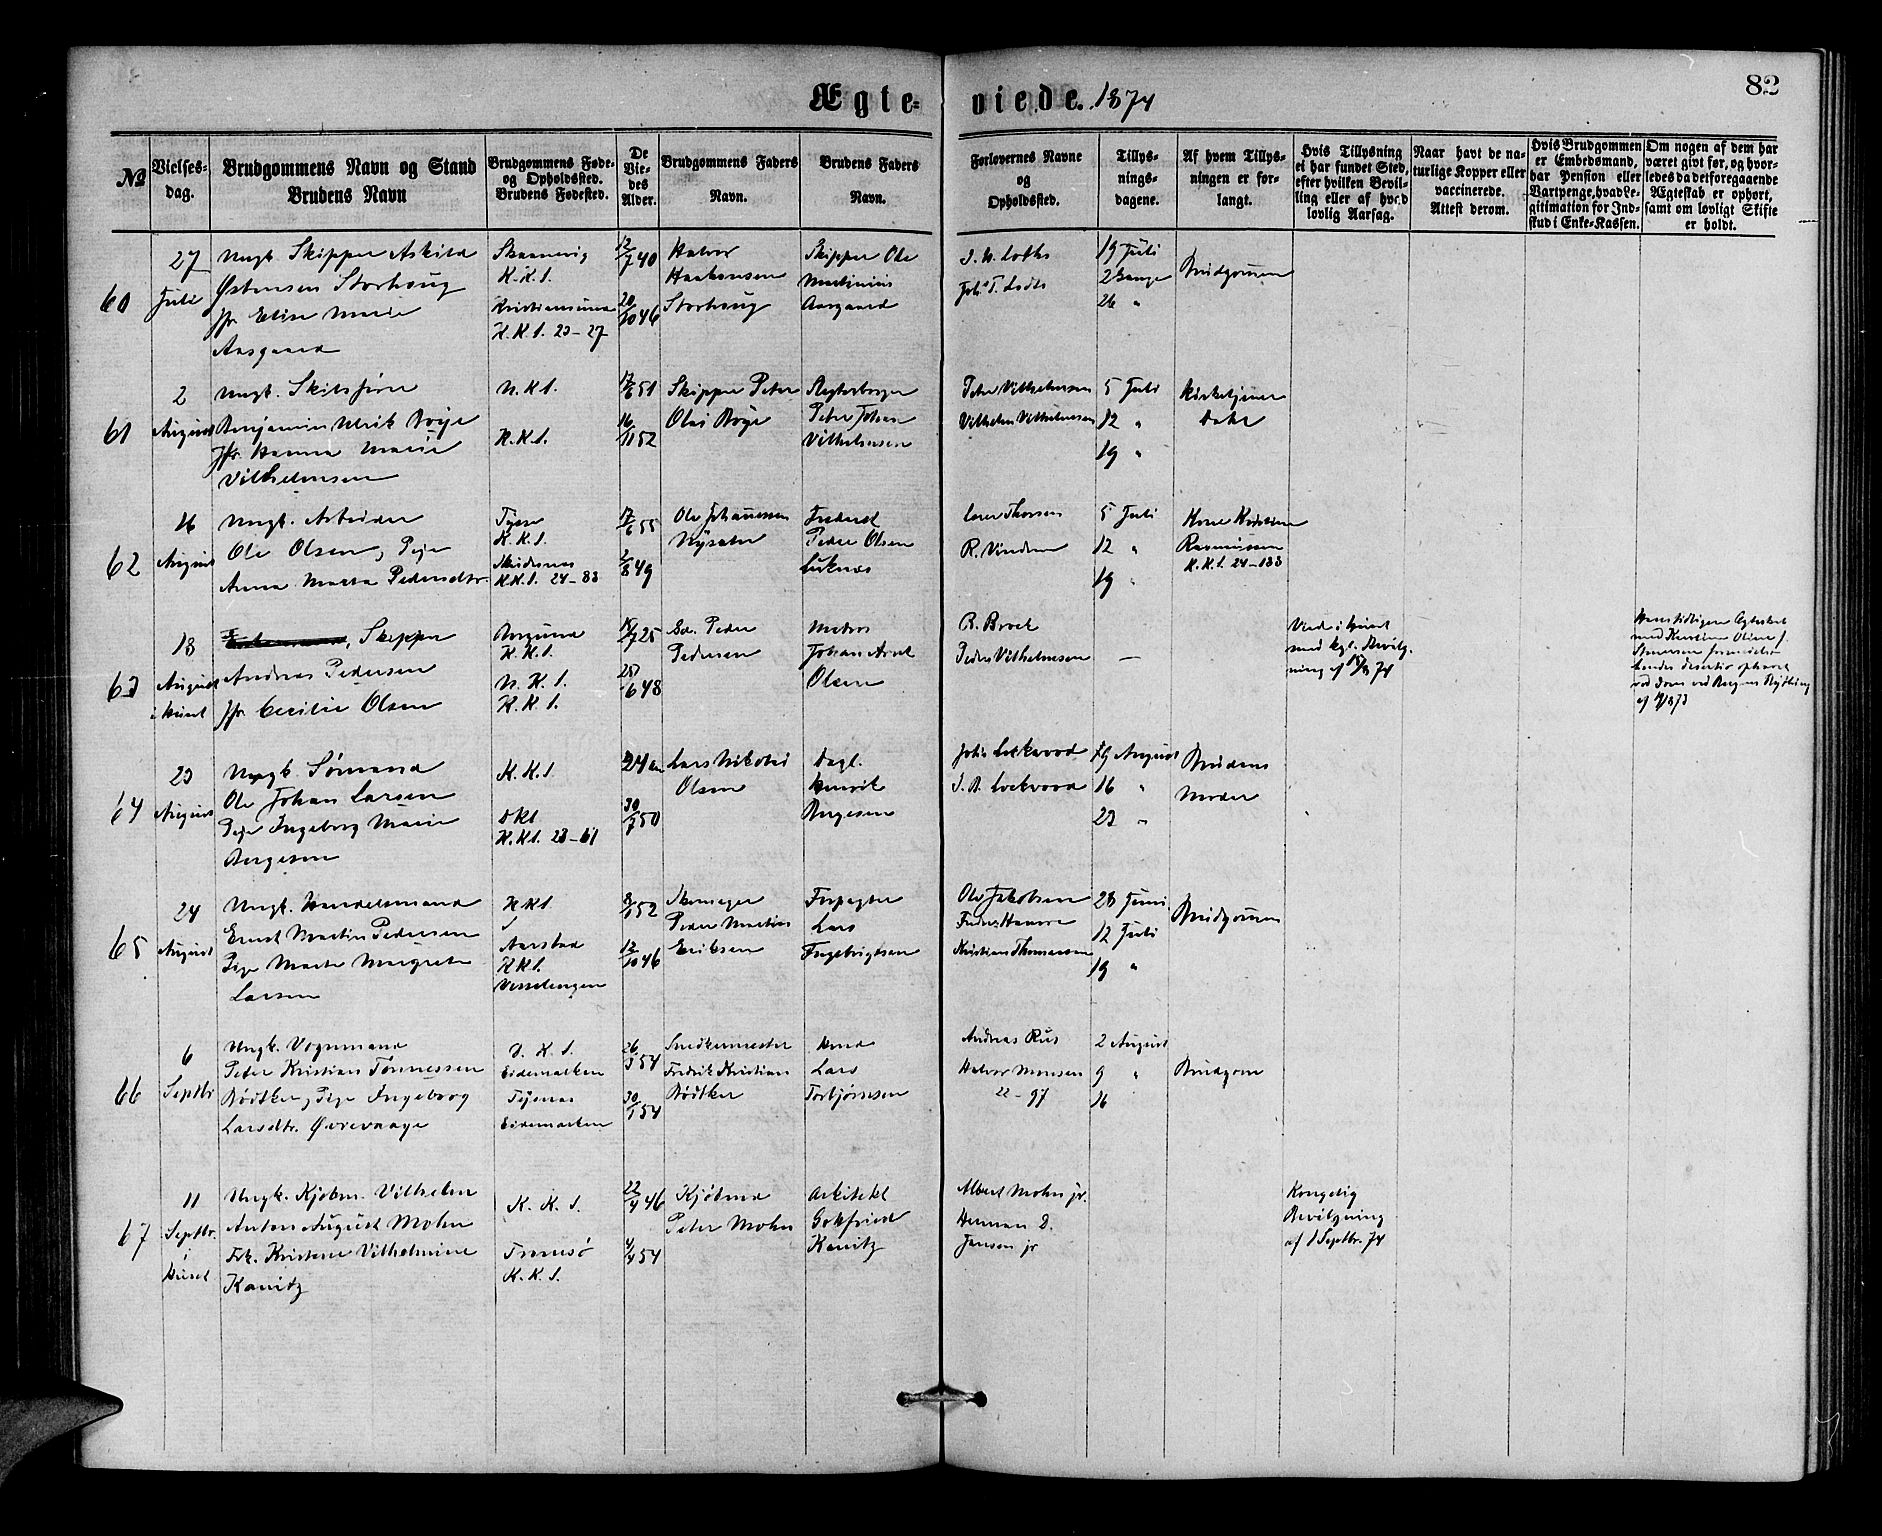 Ægte=
viede. 1874
82
№
Vielses-
dag.
Brudgommens Navn og Stand
Brudens Navn
Brudgommens Føde-
og Opholdssted.
Brudens Fødested.
De
Vie-
des
Alder.
Brudgommens Faders
Navn.
Brudens Faders
Navn.
Forlovernes Navne
og
Opholdssted.
Tillys-
nings-
dagene.
Af hvem Tillys-
ningen er for-
langt.
Hvis Tillysning
ei har fundet Sted,
efter hvilken Bevil-
ling eller af hvad
lovlig Aarsag.
Naar havt de na-
turlige Kopper eller
vaccinerede.
Attest derom.
Hvis Brudgommen
er Embedsmand,
har Pension eller
Vartpenge, hvad Le-
gitimation for Ind-
skud i Enke-Kassen.
Om nogen af dem har
været givt før, og hvor-
ledes da det foregaaende
Ægteskab er ophørt,
samt om lovligt Skifte
er holdt.
60
27
Juli
Ungk. Skipper Askild
Østensen Storhoug
Jfr. Elise Marie
Aasgaard
Skaanevig
K.K.1.
Kristiansund
K.K.1. 23-27
12/7 40
20/10 46
Halvor
Haakonsen
Storhoug
Skipper Ole
Martinius
Aasgaard
Joh. T. Lodts
19 Juli
2 Gange
26 "
Brudgommen
61
2
August
Ungk.
Benjamin Ulrik Bøje
Jfr. Hanna Marie
Vilhelmsen
K.K.1.
K.K.1.
17/6 51
16/11 52
Skipper Peter
Olai Bøje
Peter Johan
Vilhelmsen
Peter Vilhelmsen
Vilhelm Vilhelmsen
5 Juli
12 "
19 "
Kirketjener
Dahl
62
16
August
Ungk. Arbeider
Ole Olsen, Pige
Anna Marta Pedersdtr.
K.K.1.
Skudesnes
K.K.1. 24-83
17/6 55
2/8 49
Ole Johannessen
Nysæter
Peder Olsen
Loren Thorsen
5 Juli
12 "
19 "
Kone Kristine
Rasmussen
K.K.1. 24-133
63
18
August
i Huset
, Skipper
Andreas Pedersen
Jfr. Cecilie Olsen
K.K.1.
N.K.1.
K.K.1.
15/7 25
6 48
Gd. Peder
Pedersen
Matros
Johan Arnt
Olsen
B. Broch
Peder Vilhelmsen
—
Viede i Huset
med kgl. Bevilg-
ning af 15/8 74
64
23
August
Ungk. Sømand
Ole Johan Larsen
Pige Ingeborg Marie
Børgesen
K.K.1
DK1
K.K.1. 23-61
24 aar
30/7 50
Lars Nikolai
Olsen
Dagl.
Henrik
Børgesen
Johs Lockwood
J. B. Lockwood
9 August
16 "
23 "
Brudens
Moder
65
24
August
Ungk. Handelsmand
Ernst Martin Pedersen
Pige Marta Margrete
Larsen
K.K.1.
Aarstad
K.K.1.
Vesselengen
8/1 52
12/10 46
Skomager
Peder Martin
Eriksen
Forpagter
Lars
Ingebrigtsen
Ole Jakobsen
Kristian Thomassen
28 Juni
12 Juli
19 "
Brudgommen
66
6
Septbr
Ungk. Vognmand
Peter Kristian Tønnessen
Bødtker, Pige Ingeborg
Larsdtr. Øvrevaage
D.K.1.
Eidemarken
Tysnes
Eidemarken
26/3 54
30/1 54
Snedkermester
Fredrik Kristian
Bødtker
Lars
Torbjørnsen
Andreas Rus
Halvor Monsen
22-97
2 August
9 "
16
Brudgom
67
11
Septbr.
i
Huset
Ungk. Kjøbm. Vilhelm
Anton August Mohn
Frk. Kristine Vilhelmine
Kanitz
K.K.1.
Tromsø
K.K.1.
22/4 46
4/4 54
Kjøbmd
Peter Mohn
Arkitekt
Gotfried
Kanitz
Albert Mohn jr.
Herman D.
Jansen jr
Kongelig
Bevilgning
af 1 Septbr. 74